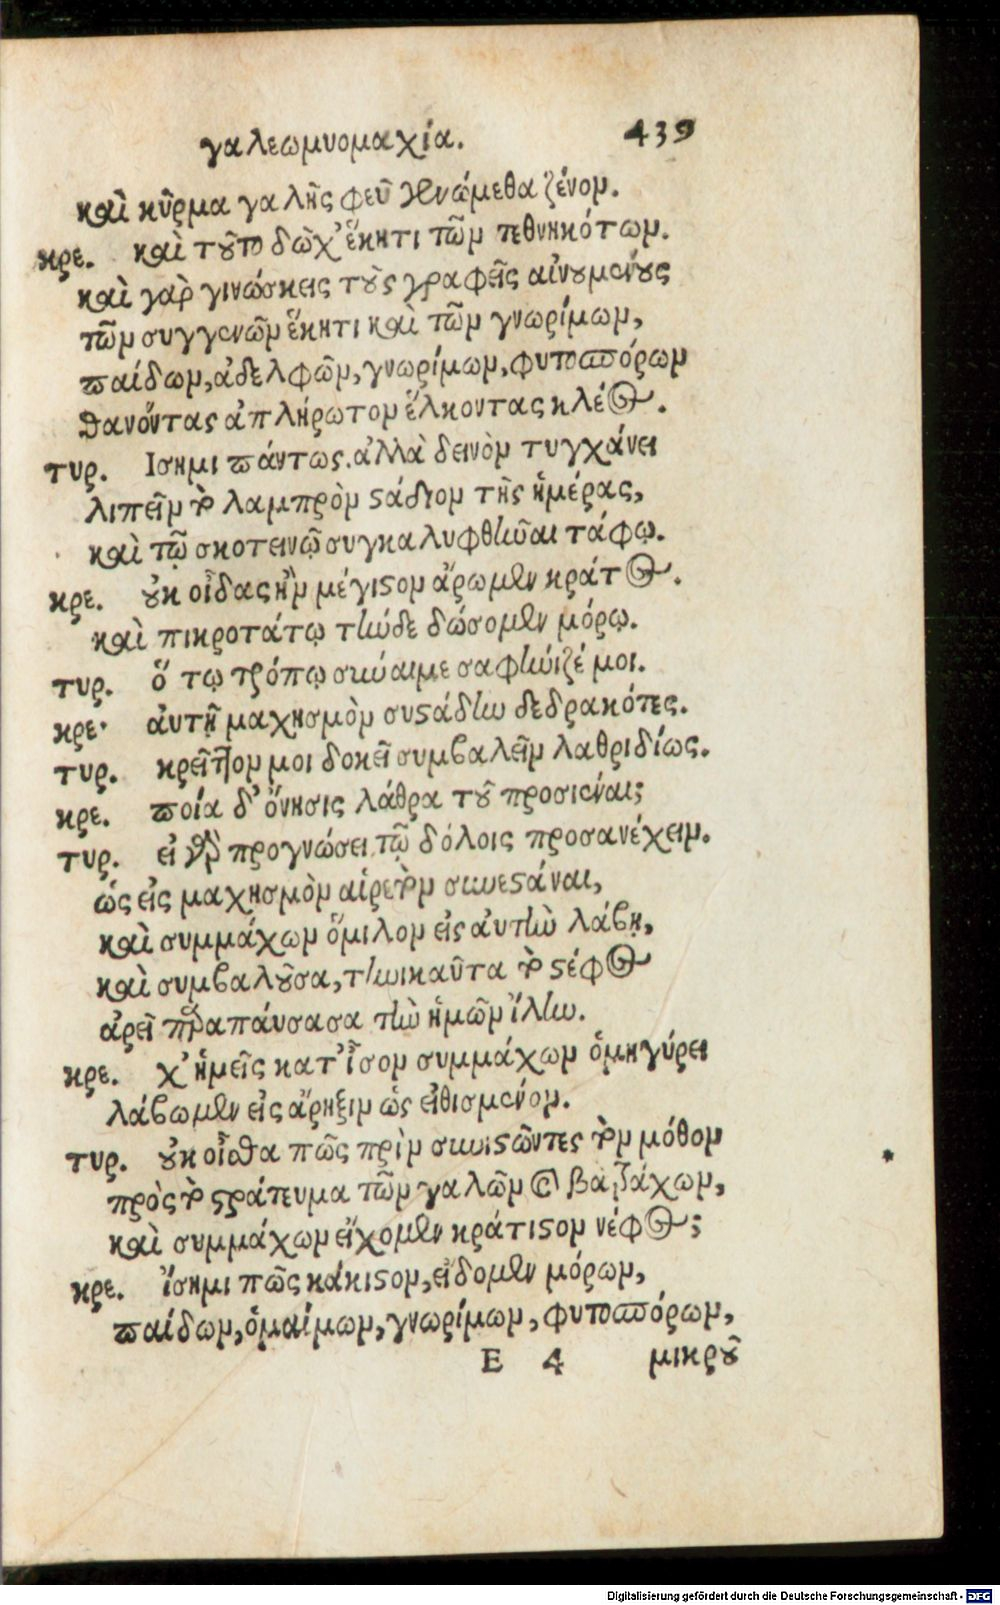 γαλεωμυομαχία. 439
καὶ κῦρμα γαλῆς φεῦ γενώμεθα ξένον.
κρε. καὶ τοῦτο δῶχ' ἕκητι τῶν τεθνηκότων.
καὶ γὰρ γινώσκεις τοὺς γραφεῖς αἰνουμένους
τῶν συγγενῶν ἕκητι καὶ τῶν γνωρίμων,
παίδων, ἀδελφῶν, γνωρίμων, φυτοσπόρων
θανόντας ἀπλήρωτον ἕλκοντας κλέος.
τυρ. Ισημι πάντως. ἀλλὰ δεινὸν τυγχάνει
λιπεῖν τὸ λαμπρὸν στάδιον τῆς ἡμέρας,
καὶ τῷ σκοτεινῷ συγκαλυφθῆναι τάφῳ.
κρε. οὐκ οἶδας ἢν μέγιστον ἄρωμεν κράτος.
καὶ πικροτάτῳ τήνδε δώσομεν μόρῳ.
τυρ. ὅτῳ τρόπῳ σύναιμε σαφήνιζέ μοι.
κρε. αὐτῇ μαχησμὸν συστάδην δεδρακότες.
τυρ. κρεῖττον μοι δοκεῖ συμβαλεῖν λαθριδίως.
κρε. ποία δ' ὄνησις λάθρα τοῦ προσιέναι;
τυρ. εἰ γὰρ προγνώσει τῷ δόλοις προσανέχειν.
ὡς εἰς μαχησμὸν αἱρετὸν συνεστάναι,
καὶ συμμάχων ὅμιλον εἰς αὐτὴν λάβῃ,
καὶ συμβαλοῦσα, τηνικαῦτα τὸ στέφος
ἀρεῖ παραπαύσασα τὴν ἡμῶν ἴλην.
κρε. χ' ἡμεῖς κατ' ἶσον συμμάχων ὁμηγύρει
λάβωμεν εἰς ἄρηξιν ὡς εἰθισμένον.
τυρ. οὐκ οἶσθα πῶς πρὶν συνιστῶντες τὸν μόθον
πρὸς τὸ στράτευμα τῶν γαλῶν καὶ βατράχων,
καὶ συμμάχων εἴχομεν κράτιστον νέφος;
κρε. ἴσημι πῶς κάκιστον, εἴδομεν μόρων,
παίδων, ὁμαίμων, γνωρίμων, φυτοσπόρων,
E 4 μικροῦ
Digitalisierung gefördert durch die Deutsche Forschungsgemeinschaft - DFG